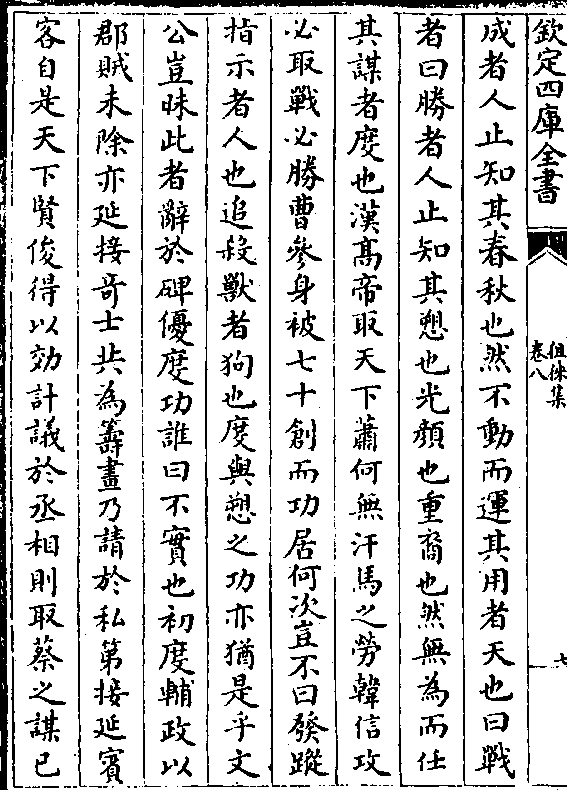 欽定四庫全書
徂徠集
卷八
七
成者人止知其春秋也然不動而運其用者天也曰戰
者曰勝者人止知其愬也光顔也重裔也然無為而任
其謀者度也漢髙帝取天下蕭何無汗馬之勞韓信攻
必取戰必勝曹參身被七十創而功居何次豈不曰發蹤
指示者人也追殺獸者狗也度與愬之功亦猶是乎文
公豈昧此者辭於碑優度功誰曰不實也初度輔政以
郡賊未除亦延接竒士共為籌畫乃請於私第接延賓
客自是天下賢俊得以効計議於丞相則取蔡之謀已